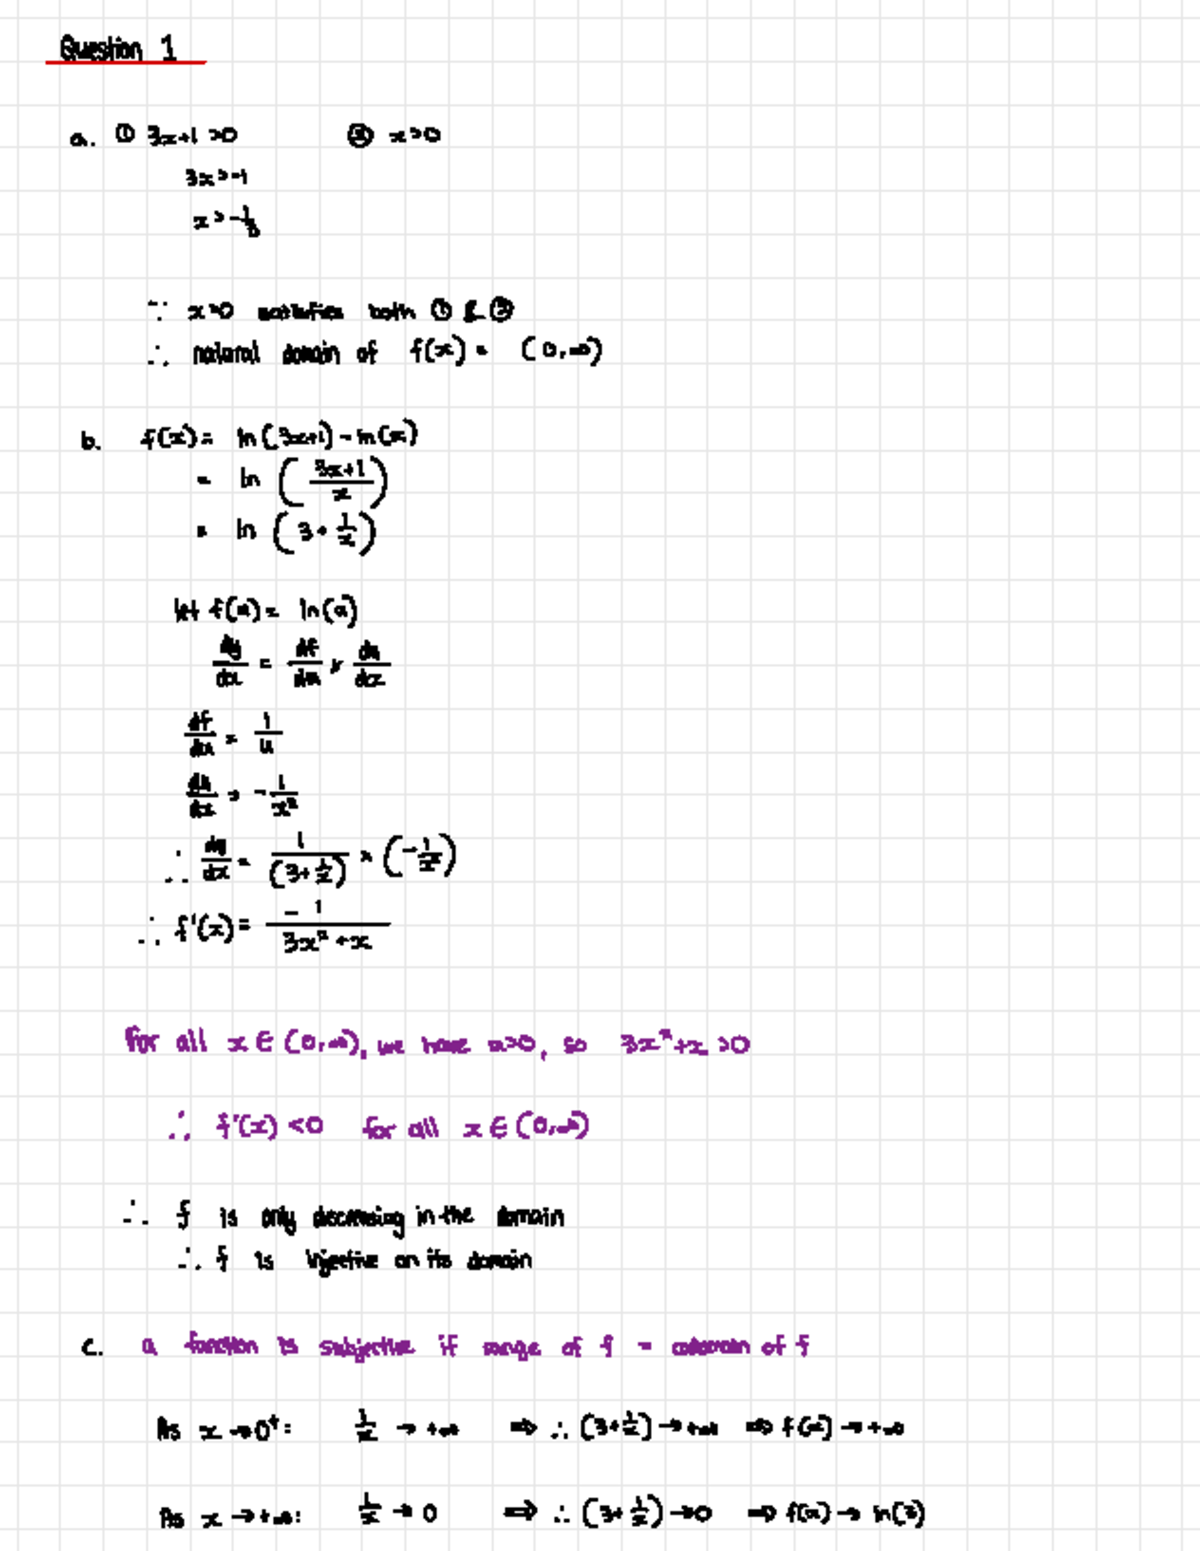 Question 1
a. ① 3x+1 >0 ② x>0
3x>-1
x>-1/3
∵ x>0 satisfies both ① & ②
∴ natural domain of f(x) = (0,∞)
b. f(x)= ln(3x+1)-ln(x)
= ln (3x+1/x)
= ln (3+1/x)
let f(u)= ln(u)
dy/dx = df/du × du/dx
df/du = 1/u
du/dx = -1/x²
∴ dy/dx = 1/(3+1/x) × (-1/x²)
∴ f'(x)= -1/3x²+x
for all x∈(0,∞), we have x>0, so 3x²+x >0
∴ f'(x) <0 for all x∈(0,∞)
∴ f is only decreasing in the domain
∴ f is injective on its domain
c. a function is subjective if range of f = codomain of f
As x→0⁺: 1/x → +∞ ⇒ ∴ (3+1/x)→+∞ ⇒ f(x)→+∞
As x→+∞: 1/x → 0 ⇒ ∴ (3+1/x)→0 ⇒ f(x)→ ln(3)